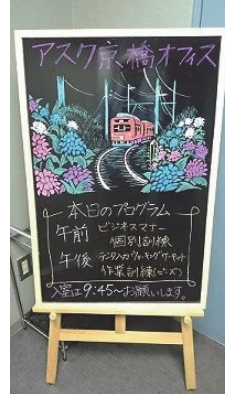 アスク京橋オフィス
本日のプログラム
午前 ビジネスマナー
個別訓練
午後 データ入力 ウォーキング サーキット
作業訓練(ビーズ)
入室は9:45〜お願いします。